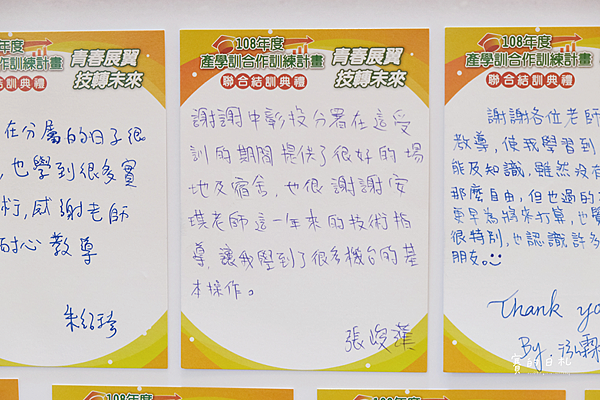 108年度
產學訓合作訓練計畫
聯合結訓典禮
青春展翼
技轉未來
在分屬的日子很
,也學到很多實
術,感謝老師
耐心教導
108年度
產學訓合作訓練計畫
聯合結訓典禮
青春展翼
技轉未來
謝謝中彰投分署在這受
訓的期間提供了很好的場
地及宿舍,也很謝謝安
琪老師這一年來的技術指
導,讓我學到了很多機台的基
本操作。
張峻
108年度
產學訓合作訓練計畫
聯合結訓典禮
謝謝各位老師
教導,使我學習到
能及知識,雖然沒有
那麼自由,但也過的
更早為將來打算,也覺
很特別,也認識許多
朋友。
Thank yo
By.
的日札
108年度
108年度
108年度